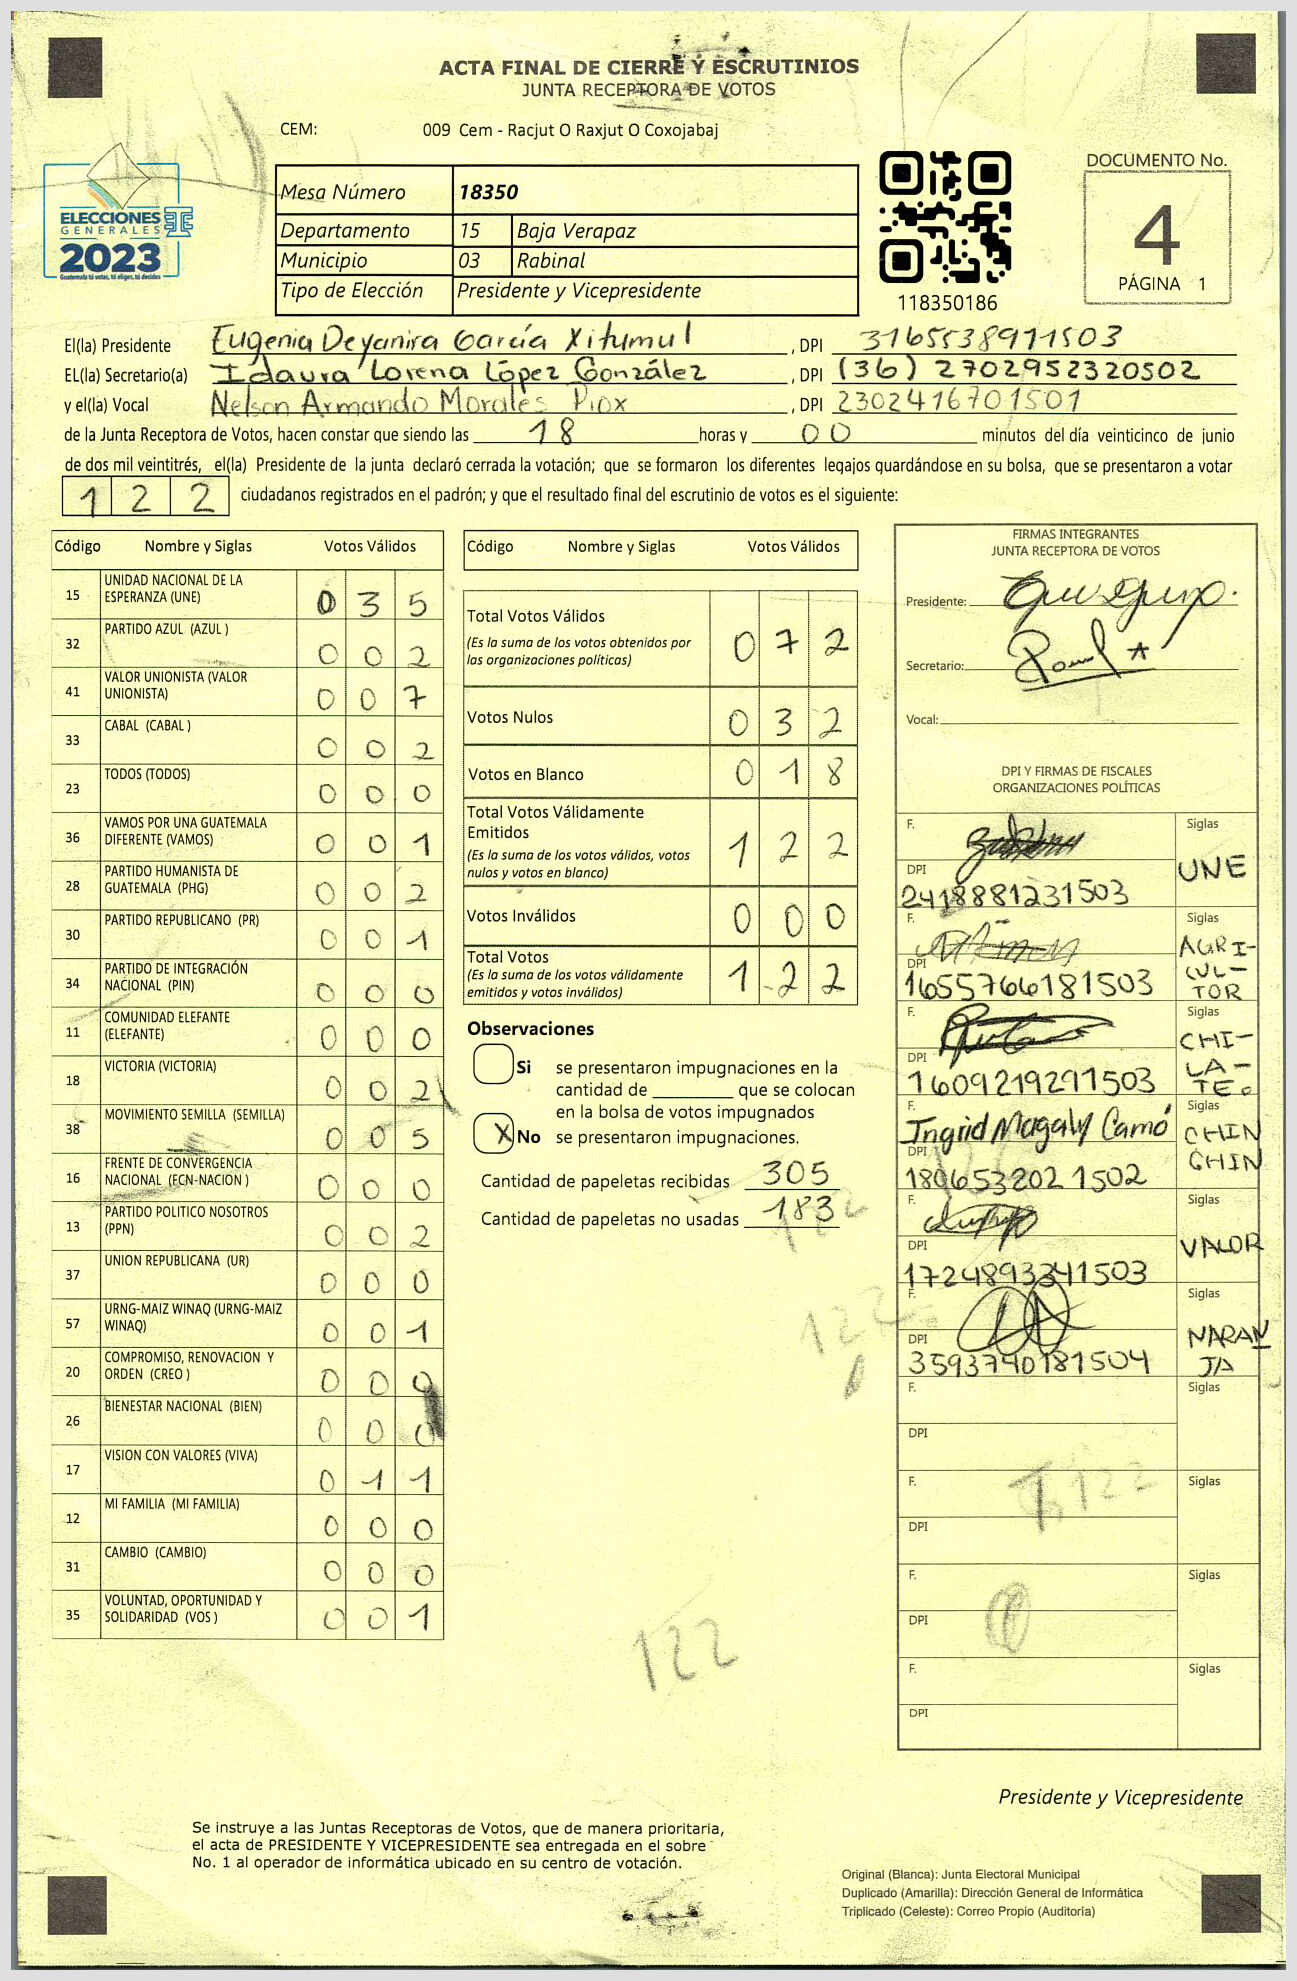 ACTA FINAL DE CIERRE Y ESCRUTINIOS
JUNTA RECEPTORA DE VOTOS
CEM: 009 Cem - Racjut O Raxjut O Coxojabaj
ELECCIONES
GENERALES
2023
Guatemala tú votas, tú eliges, tú decides
Mesa Número 18350
Departamento 15 Baja Verapaz
Municipio 03 Rabinal
Tipo de Elección Presidente y Vicepresidente
118350186
DOCUMENTO No.
4
PÁGINA 1
El(la) Presidente Eugenia Deyanira García Xitumul , DPI 3165538911503
EL(la) Secretario(a) Idaura Lorena López González , DPI (36) 2702952320502
y el(la) Vocal Nelson Armando Morales Piox , DPI 2302416701501
de la Junta Receptora de Votos, hacen constar que siendo las 18 horas y 00 minutos del día veinticinco de junio
de dos mil veintitrés, el(la) Presidente de la junta declaró cerrada la votación; que se formaron los diferentes legajos guardándose en su bolsa, que se presentaron a votar
122 ciudadanos registrados en el padrón; y que el resultado final del escrutinio de votos es el siguiente:
Código Nombre y Siglas Votos Válidos
15 UNIDAD NACIONAL DE LA
ESPERANZA (UNE) 0 3 5
32 PARTIDO AZUL (AZUL ) 0 0 2
41 VALOR UNIONISTA (VALOR
UNIONISTA) 0 0 7
33 CABAL (CABAL ) 0 0 2
23 TODOS (TODOS) 0 0 0
36 VAMOS POR UNA GUATEMALA
DIFERENTE (VAMOS) 0 0 1
28 PARTIDO HUMANISTA DE
GUATEMALA (PHG) 0 0 2
30 PARTIDO REPUBLICANO (PR) 0 0 1
34 PARTIDO DE INTEGRACIÓN
NACIONAL (PIN) 0 0 0
11 COMUNIDAD ELEFANTE
(ELEFANTE) 0 0 0
18 VICTORIA (VICTORIA) 0 0 2
38 MOVIMIENTO SEMILLA (SEMILLA) 0 0 5
16 FRENTE DE CONVERGENCIA
NACIONAL (FCN-NACION ) 0 0 0
13 PARTIDO POLITICO NOSOTROS
(PPN) 0 0 2
37 UNION REPUBLICANA (UR) 0 0 0
57 URNG-MAIZ WINAQ (URNG-MAIZ
WINAQ) 0 0 1
20 COMPROMISO, RENOVACION Y
ORDEN (CREO ) 0 0 0
26 BIENESTAR NACIONAL (BIEN) 0 0 0
17 VISION CON VALORES (VIVA) 0 1 1
12 MI FAMILIA (MI FAMILIA) 0 0 0
31 CAMBIO (CAMBIO) 0 0 0
35 VOLUNTAD, OPORTUNIDAD Y
SOLIDARIDAD (VOS ) 0 0 1
Código Nombre y Siglas Votos Válidos
Total Votos Válidos 0 7 2
(Es la suma de los votos obtenidos por
las organizaciones políticas)
Votos Nulos 0 3 2
Votos en Blanco 0 1 8
Total Votos Válidamente
Emitidos 1 2 2
(Es la suma de los votos válidos, votos
nulos y votos en blanco)
Votos Inválidos 0 0 0
Total Votos 1 2 2
(Es la suma de los votos válidamente
emitidos y votos inválidos)
Observaciones
Si se presentaron impugnaciones en la
cantidad de ________ que se colocan
en la bolsa de votos impugnados
X No se presentaron impugnaciones.
Cantidad de papeletas recibidas 305
Cantidad de papeletas no usadas 183
122
122
122
FIRMAS INTEGRANTES
JUNTA RECEPTORA DE VOTOS
Presidente:
Secretario:
Vocal:
DPI Y FIRMAS DE FISCALES
ORGANIZACIONES POLÍTICAS
F. Siglas
UNE
DPI
2418881231503
F. Siglas
AGRI-
CUL-
TOR
DPI
1655766181503
F. Siglas
CHI-
LA-
TE.
DPI
1609219291503
F. Ingrid Magaly Camó Siglas
CHIN
CHIN
DPI
1806532021502
F. Siglas
VALOR
DPI
1724893341503
F. Siglas
NARAN
JA
DPI
3593740181504
F. Siglas
DPI
F. Siglas
DPI
F. Siglas
DPI
F. Siglas
DPI
Presidente y Vicepresidente
Se instruye a las Juntas Receptoras de Votos, que de manera prioritaria,
el acta de PRESIDENTE Y VICEPRESIDENTE sea entregada en el sobre
No. 1 al operador de informática ubicado en su centro de votación.
Original (Blanca): Junta Electoral Municipal
Duplicado (Amarilla): Dirección General de Informática
Triplicado (Celeste): Correo Propio (Auditoría)